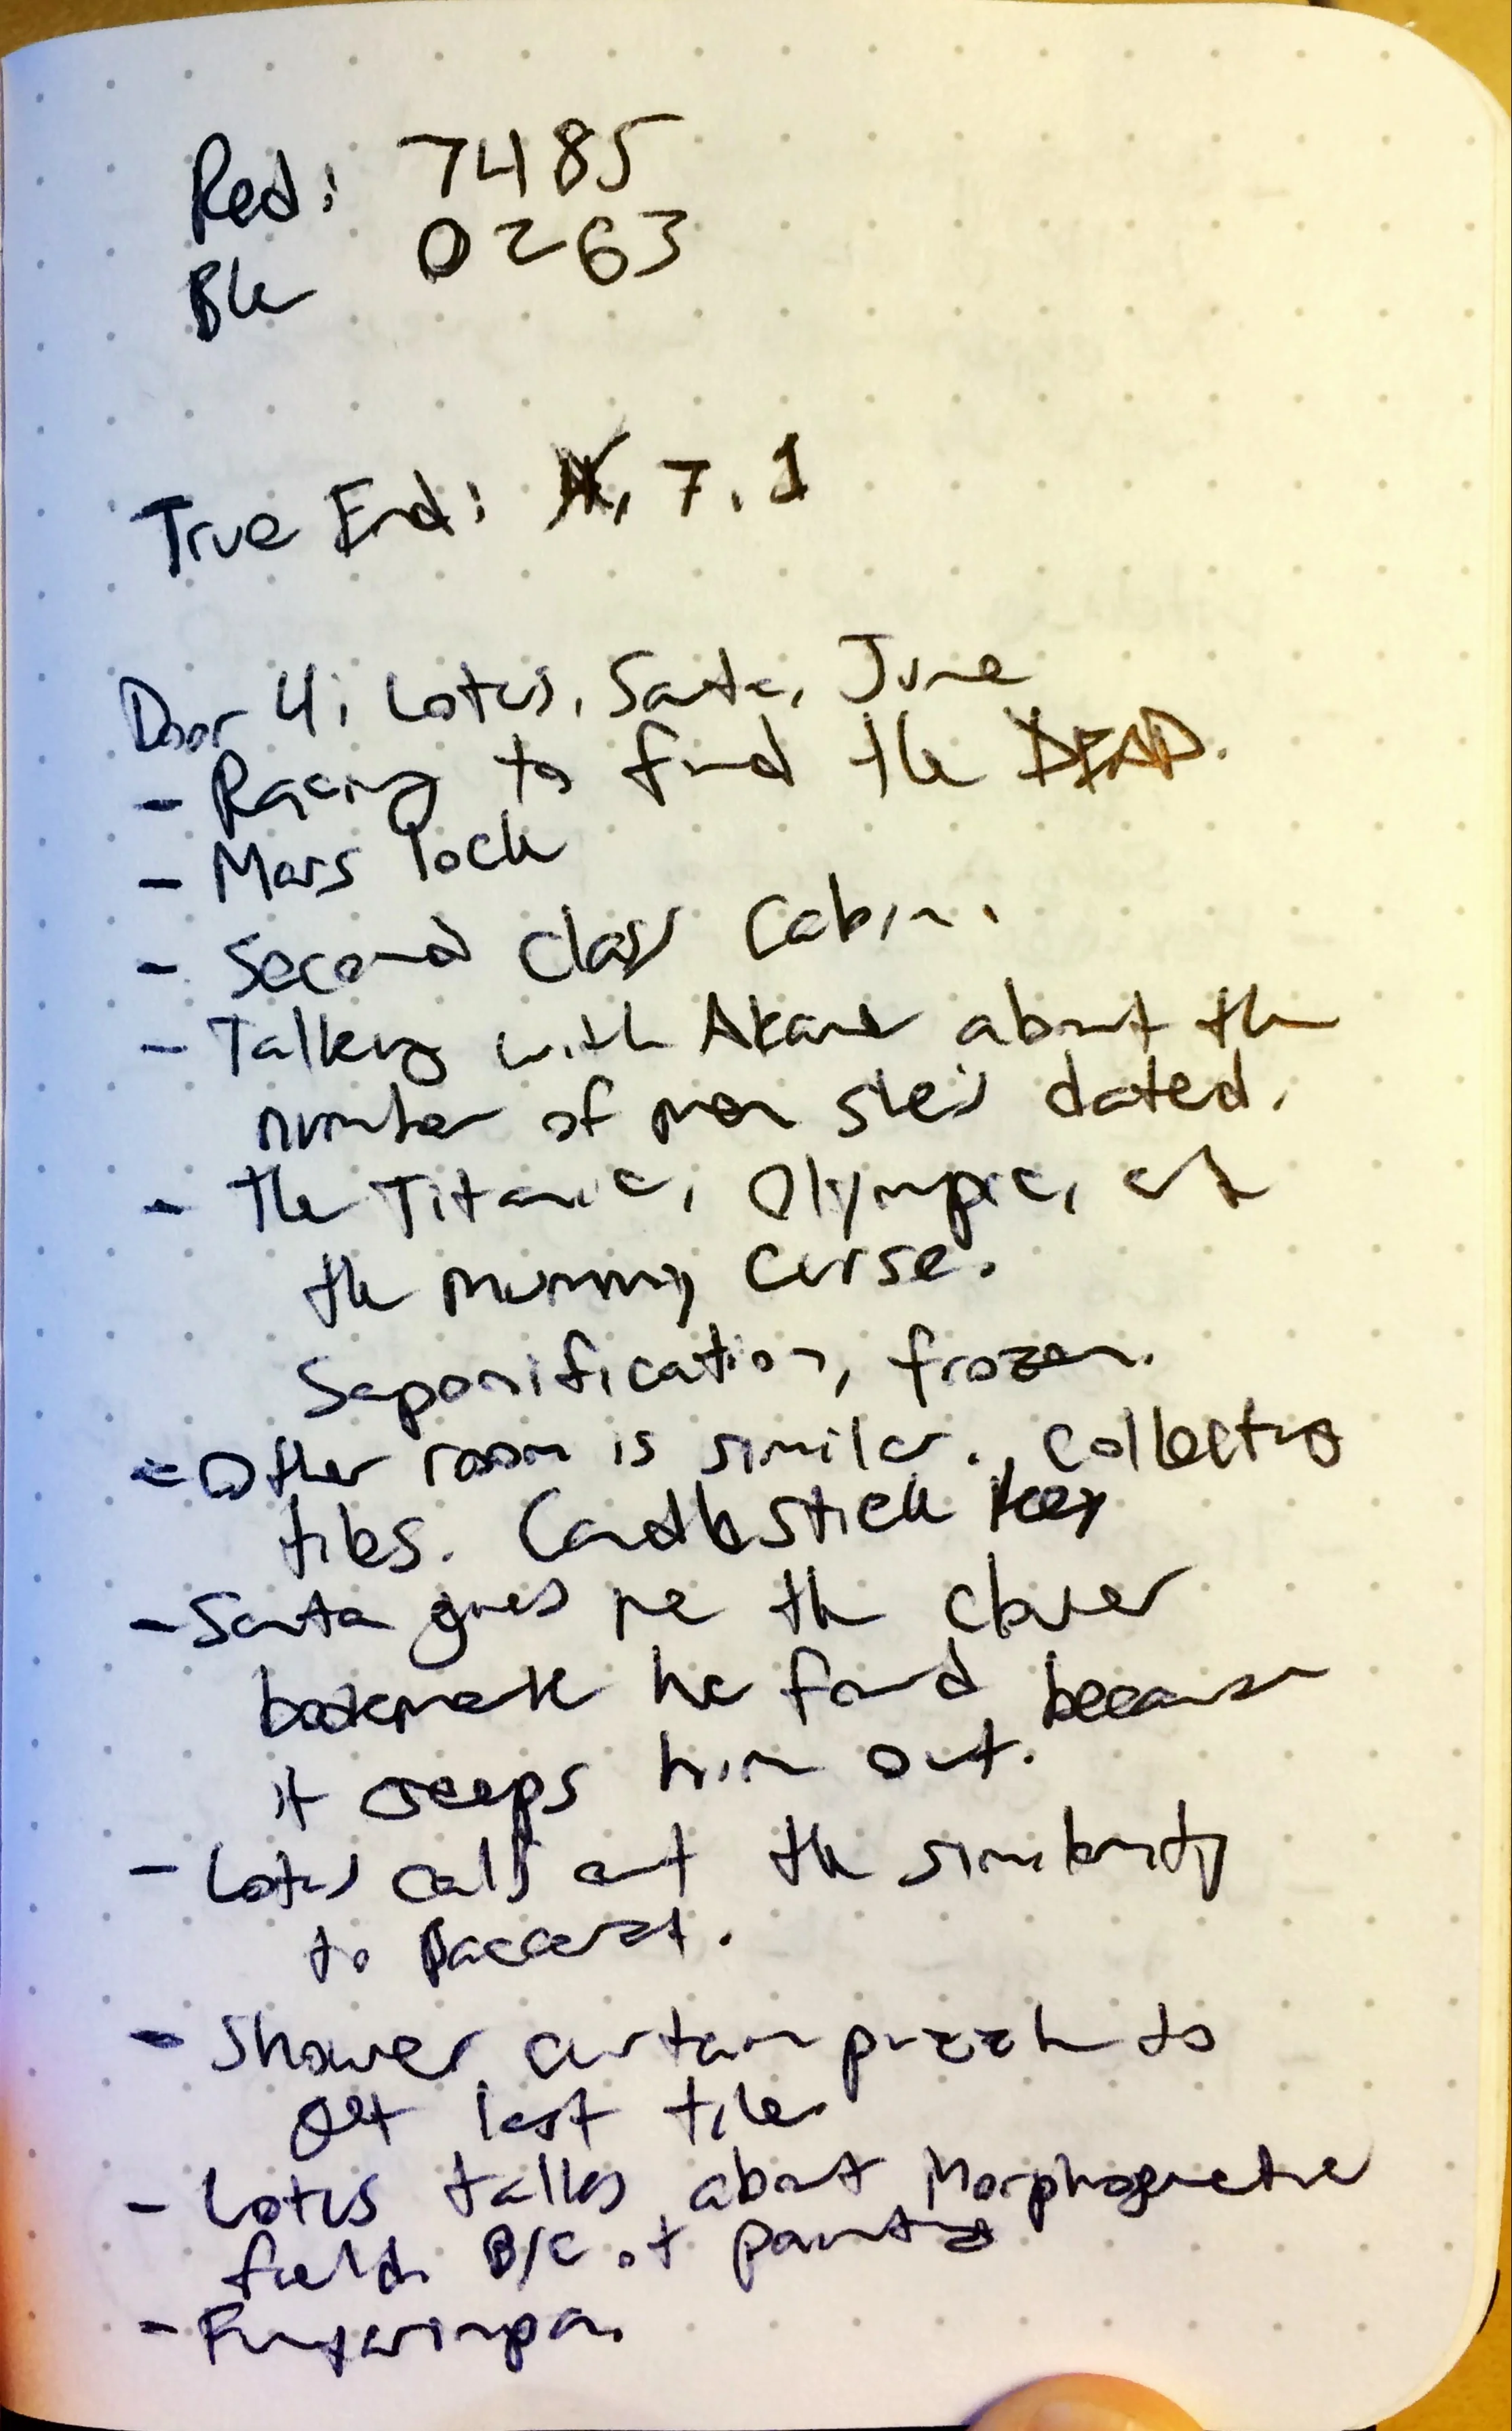 Red: 7485
Blu 0263
True End: 7, 1
Door 4: Lotus, Santa, June
- Racing to find the DEAD.
- Mars lock
- Second class Cabin.
- Talking with Akane about the
number of men she's dated.
- the Titanic, Olympic, and
the mummy curse.
Saponification, frozen.
- Other room is similar. Collecting
tiles. Candlestick key
- Santa gives me the clover
bookmark he found because
it creeps him out.
- Lotus calls out the similarity
to Baccarat.
- Shower curtain puzzle to
get last tile.
- Lotus talks about Morphogenetic
field B/C of painting
-